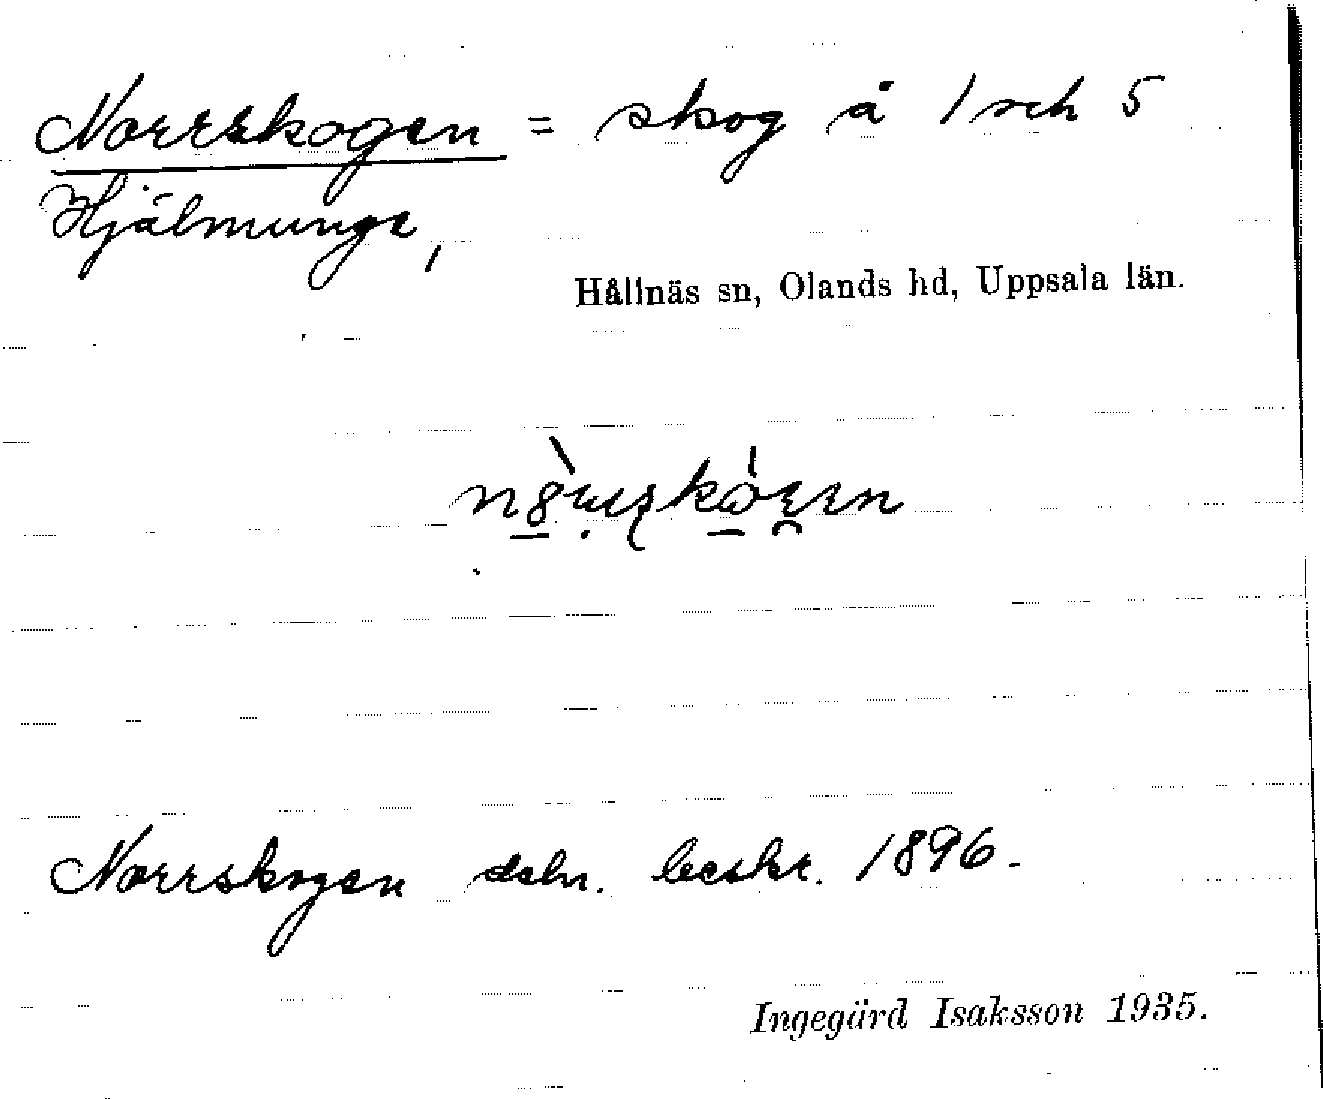 Norrskogen = skog å 1 och 5
Hjälmunge,
Hållnäs sn, Olands hd, Uppsala län.
Norrskogen deln. beskr. 1896.
Ingegärd Isaksson 1935.